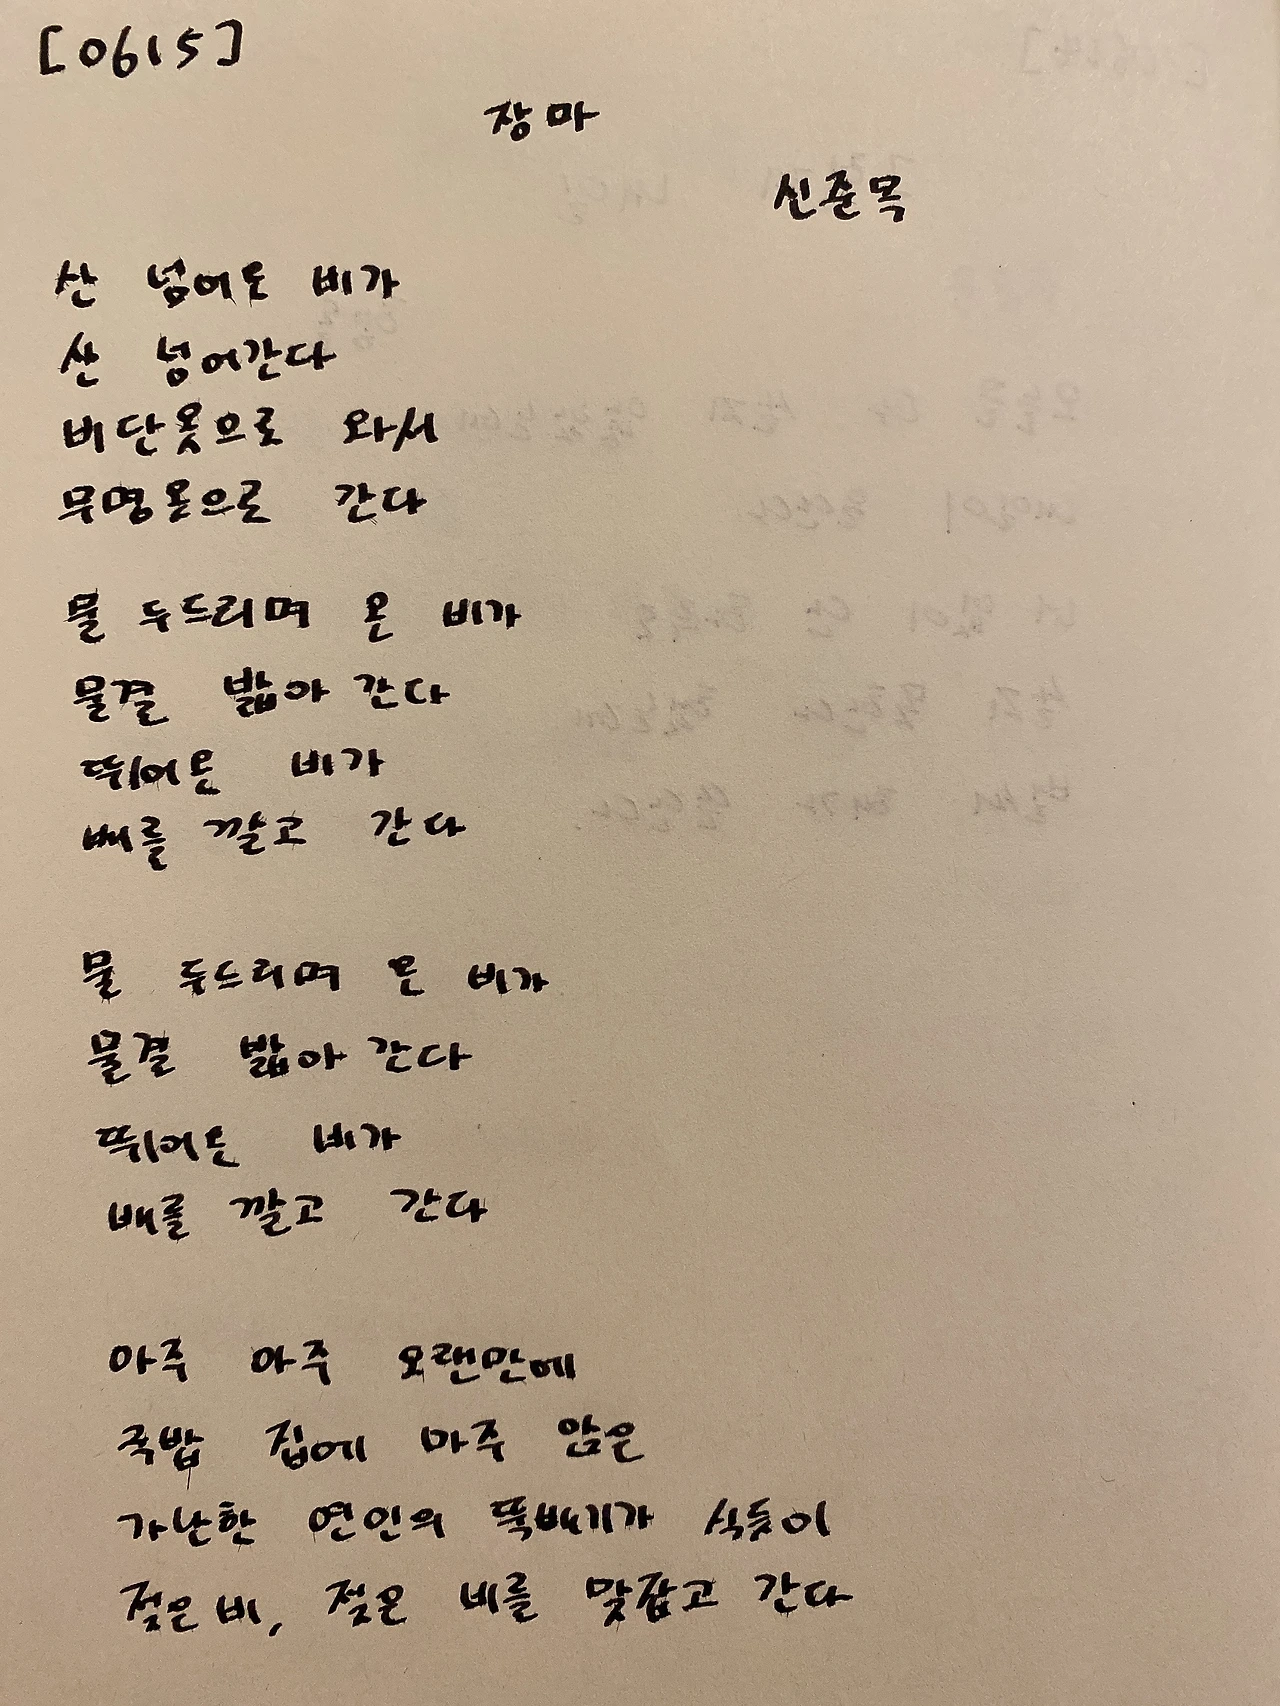 [0615]
장마
신준목
산 넘어온 비가
산 넘어간다
비단옷으로 와서
무명옷으로 간다
물 두드리며 온 비가
물결 밟아 간다
뛰어온 비가
배를 깔고 간다
물 두드리며 온 비가
물결 밟아 간다
뛰어온 비가
배를 깔고 간다
아주 아주 오랜만에
국밥 집에 마주 앉은
가난한 연인의 뚝배기가 식듯이
젖은 비, 젖은 비를 맞잡고 간다